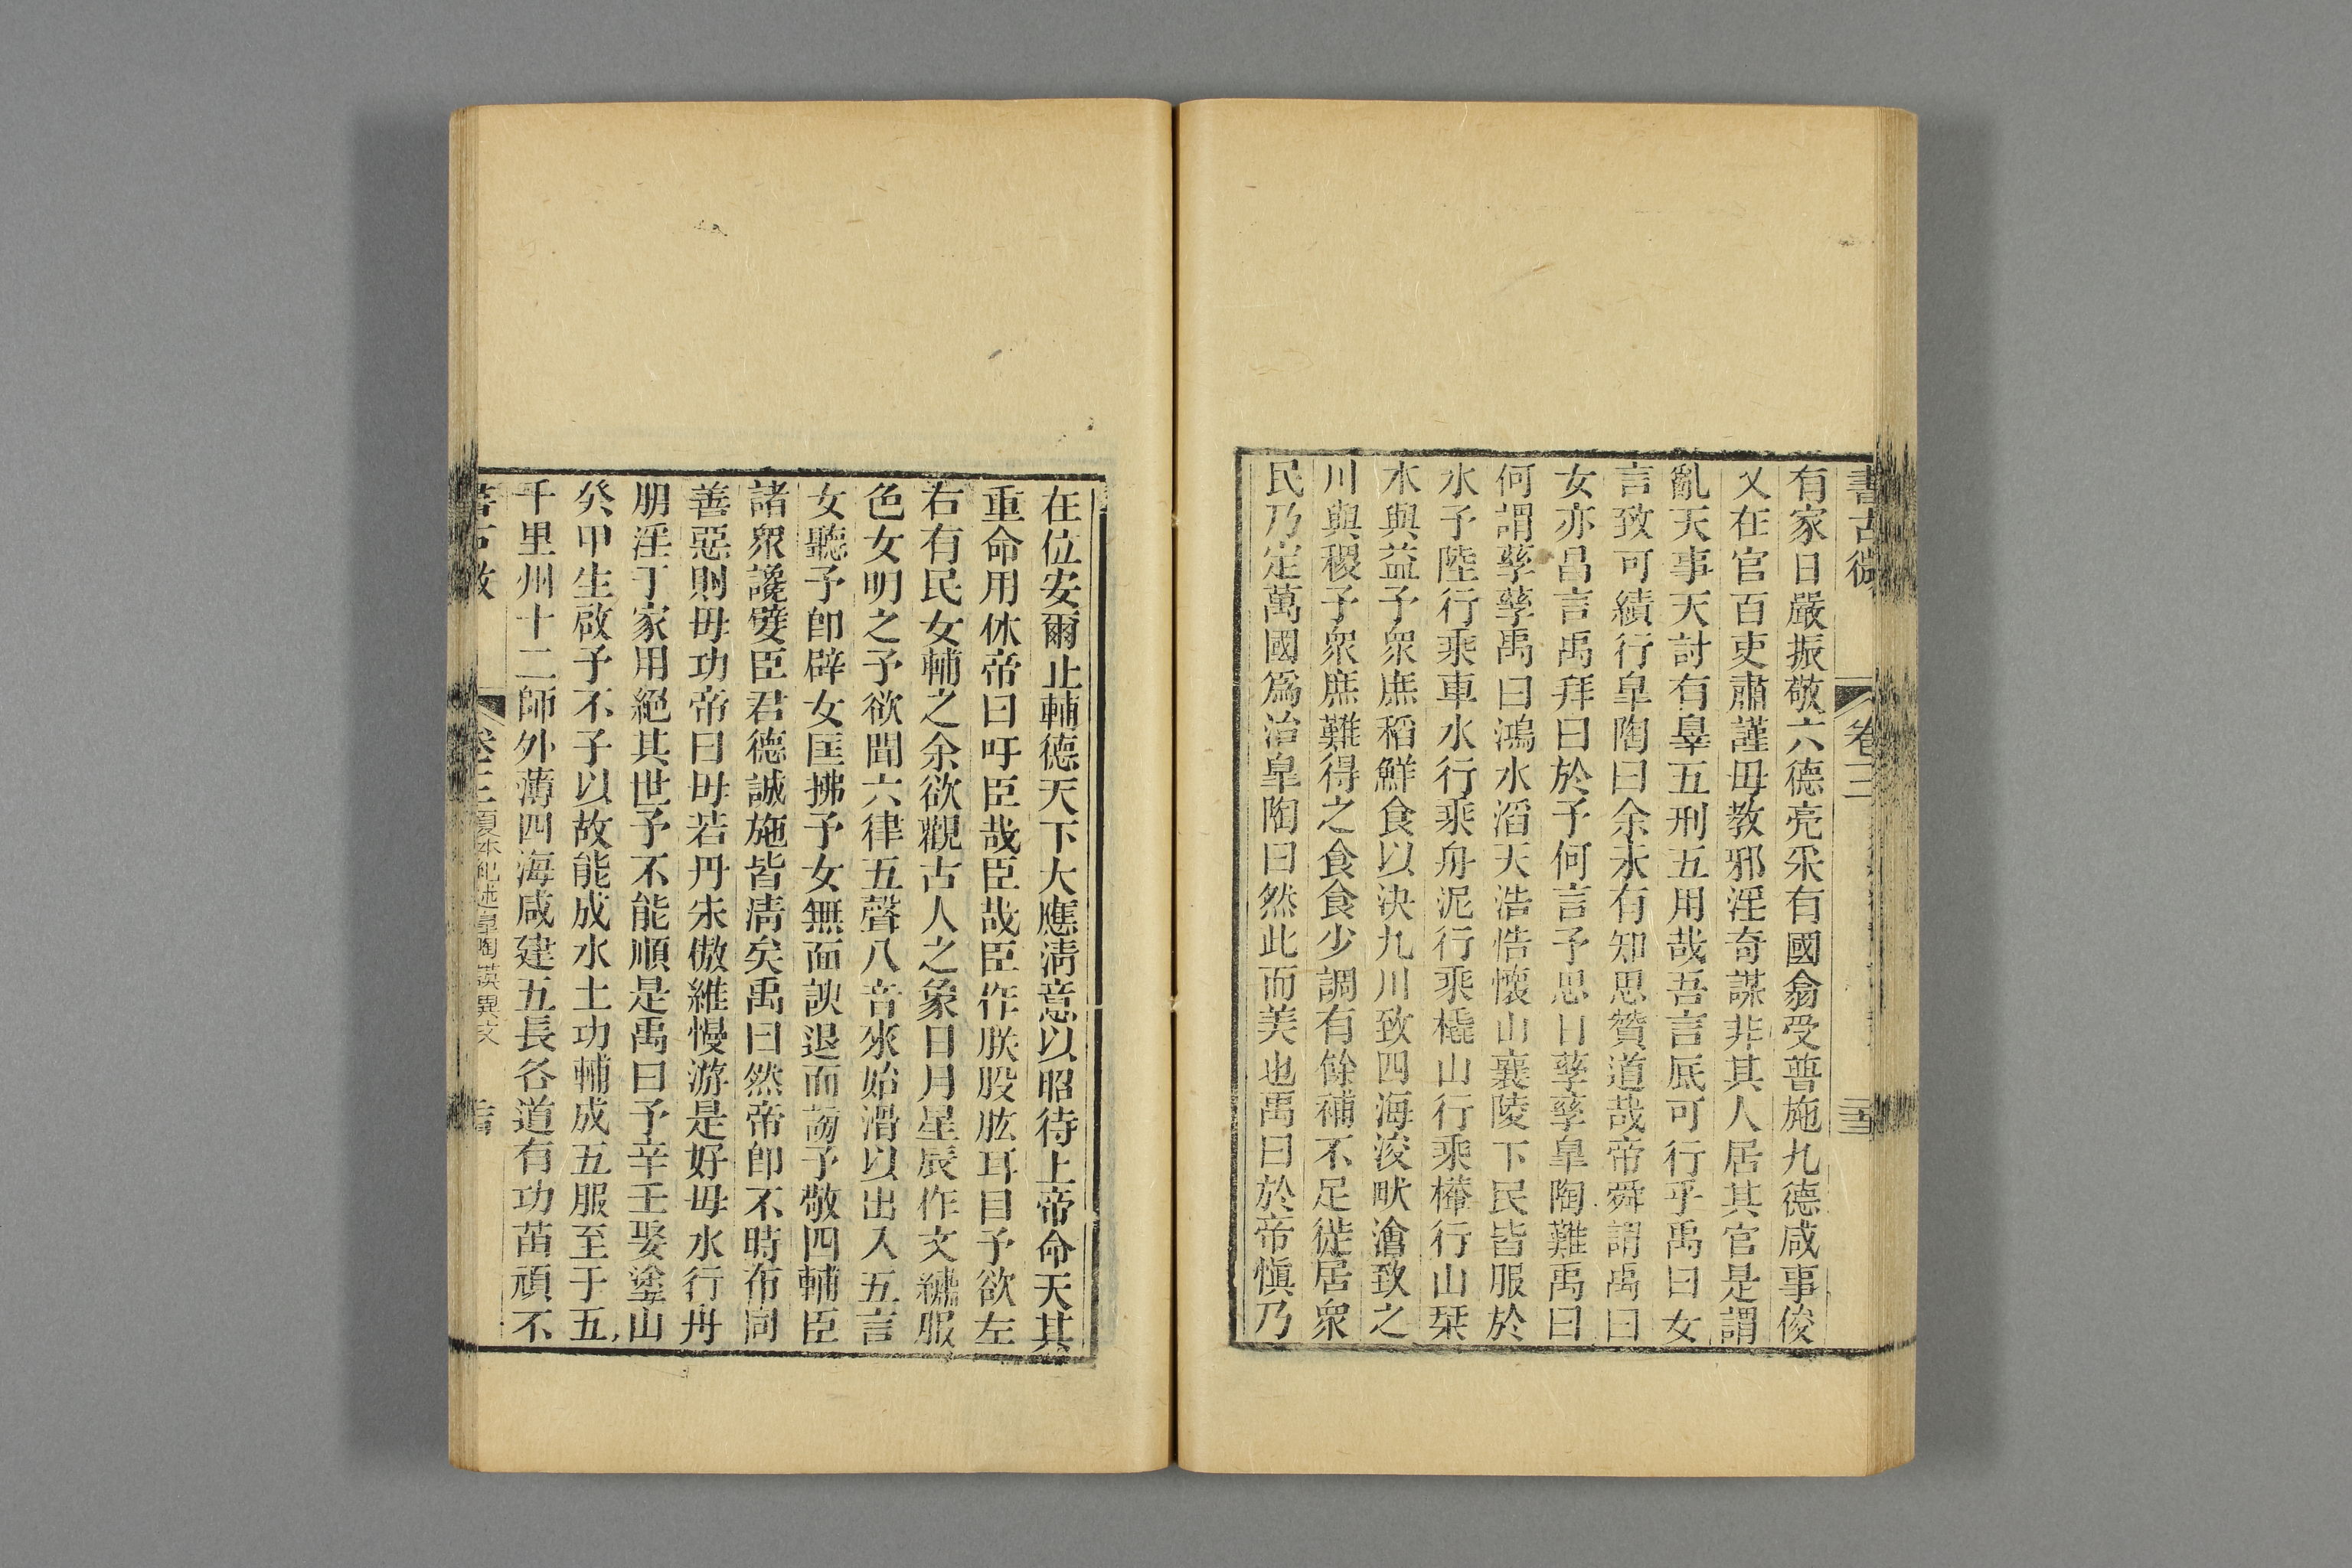 書古微
卷三
有家日嚴振敬六德亮采有國翕受普施九德咸事俊
乂在官百吏肅謹毋教邪淫奇謀非其人居其官是謂
亂天事天討有辠五刑五用哉吾言厎可行乎禹曰女
言致可績行皐陶曰余未有知思贊道哉帝舜謂禹曰
女亦昌言禹拜曰於予何言予思日孳孳皐陶難禹曰
何謂孳孳禹曰鴻水滔天浩浩懷山襄陵下民皆服於
水予陸行乘車水行乘舟泥行乘橇山行乘檋行山栞
木與益予衆庶稻鮮食以決九川致四海浚畎澮致之
川與稷予衆庶難得之食食少調有餘補不足徙居衆
民乃定萬國爲治皐陶曰然此而美也禹曰於帝愼乃
在位安爾止輔德天下大應淸意以昭待上帝命天其
重命用休帝曰吁臣哉臣哉臣作朕股肱耳目予欲左
右有民女輔之余欲觀古人之象日月星辰作文繡服
色女明之予欲聞六律五聲八音來始滑以出入五言
女聽予卽辟女匡拂予女無面諛退而謗予敬四輔臣
諸衆讒嬖臣君德誠施皆淸矣禹曰然帝卽不時布同
善惡則毋功帝曰毋若丹朱傲維慢游是好毋水行舟
朋淫于家用絕其世予不能順是禹曰予辛壬娶塗山
癸甲生啟予不子以故能成水土功輔成五服至于五
千里州十二師外薄四海咸建五長各道有功苗頑不
書古微
卷三夏本紀述皐陶謨異文